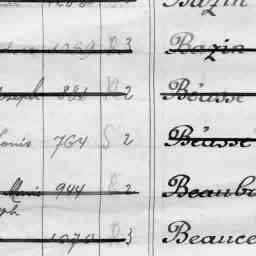 Bazin
1259 R 3 Bazin
Joseph 886 R 2 Béasse
Louis 764 S 2 Béasse
Marie 944 R 2 Beaubo
ph
1070 R 3 Beauce